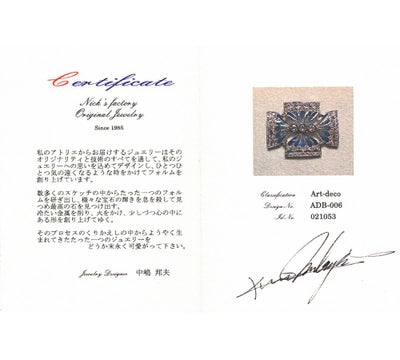 Certificate
Nick's factory
Original Jewelry
Since 1985
私のアトリエからお届けするジュエリーはその
オリジナリティと技術のすべてを通して、私のジ
ュエリーへの思いを込めてデザインし、ひとつひ
とつ気の遠くなるような時をかけてフォルムを
創り上げています。
数多くのスケッチの中からたった一つのフォルム
を研ぎ出し、様々な宝石の輝きを息を殺して見
つめ最高の石を見つけ出す。
冷たい金属を削り、火をかけ、少しづつ心の中にあ
る形を創り上げてゆく。
そのプロセスのくりかえしの中からようやく生
まれてきたたった一つのジュエリーを
どうか末永く可愛がって下さい。
Jewelry Designer 中嶋 邦夫
Classification Art-deco
Design No. ADB-006
Sel.No. 021053